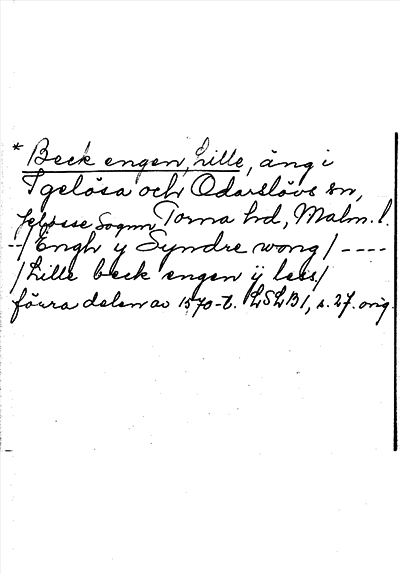 * Beck engen, Lille, äng i
Igelösa och Odarslövs sn,
Jelösse Sognn Torna hd, Malm. l.
-/ Engh y Syndre wong / ----
/ Lille beck engen ÿ less /
förra delen av 1570-t. LSLB1, s. 27. orig.